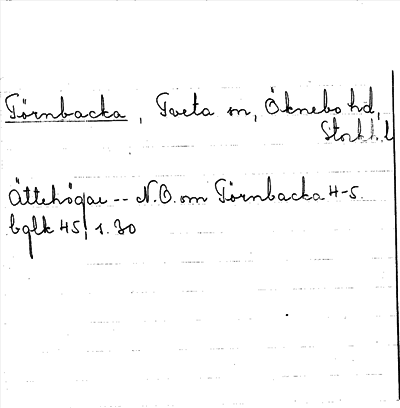 Törnbacka, Tveta sn, Öknebo hd,
Stockh. l
Ättehögar -- N.O. om Törnbacka 4-5.
bglk 45, 1.30